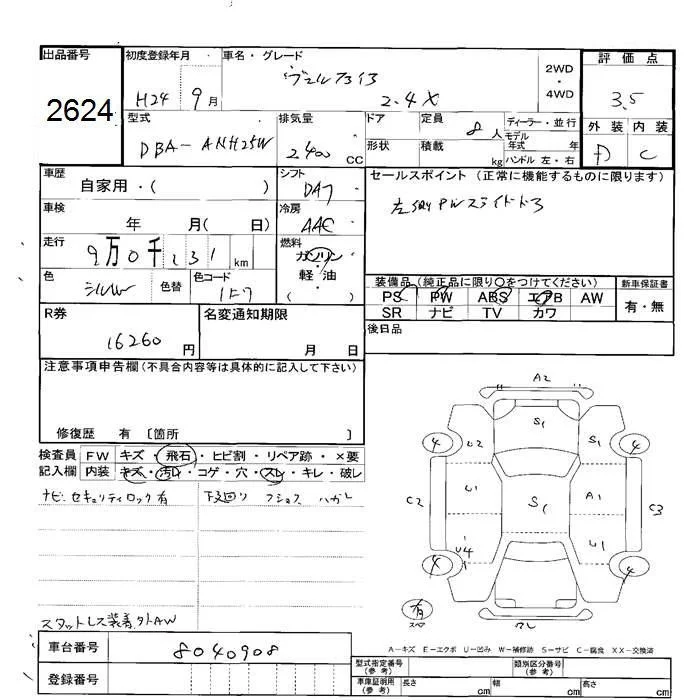 出品番号
2624
初度登録年月
H24 9月
車名・グレード
ヴェルファイア
2.4X
2WD
・
4WD
評価点
3.5
型式
DBA-ANH25W
排気量
2400 CC
ドア
定員
8人
ディーラー・並行
モデル
年式 年
形状
積載
kg
ハンドル 左・右
外装 内装
D C
車歴
自家用・( )
シフト
DA7
セールスポイント (正常に機能するものに限ります)
左SRPWスライドドア
車検
年 月( 日)
冷房
AAC
走行
9万0千231km
燃料
ガソリン
・
軽油
( )
色
シルバー
色替
色コード
1F7
装備品(純正品に限り○をつけてください)
PS PW ABS エアB AW
SR ナビ TV カワ
新車保証書
有・無
R券
16260円
名変通知期限
月 日
後日品
注意事項申告欄(不具合内容等は具体的に記入して下さい)
修復歴 有 〔箇所 〕
検査員
記入欄
FW キズ・飛石・ヒビ割・リペア跡・×要
内装 キズ・汚れ・コゲ・穴・スレ・キレ・破レ
ナビセキュリティロック有
下廻り
ハガレ
スタットレス装着外AW
A2
S1
4
U2
S1
4
C2
U1
S1
A1
C3
U4
U1
4
4
有
スペア
A-キズ E-エクボ U-凹み W-補修跡 S-サビ C-腐食 XX-交換済
車台番号
8040908
登録番号
型式指定番号
(参考)
類別区分番号
(参考)
車庫証明用
(参考)
長さ cm
幅 cm
高さ cm